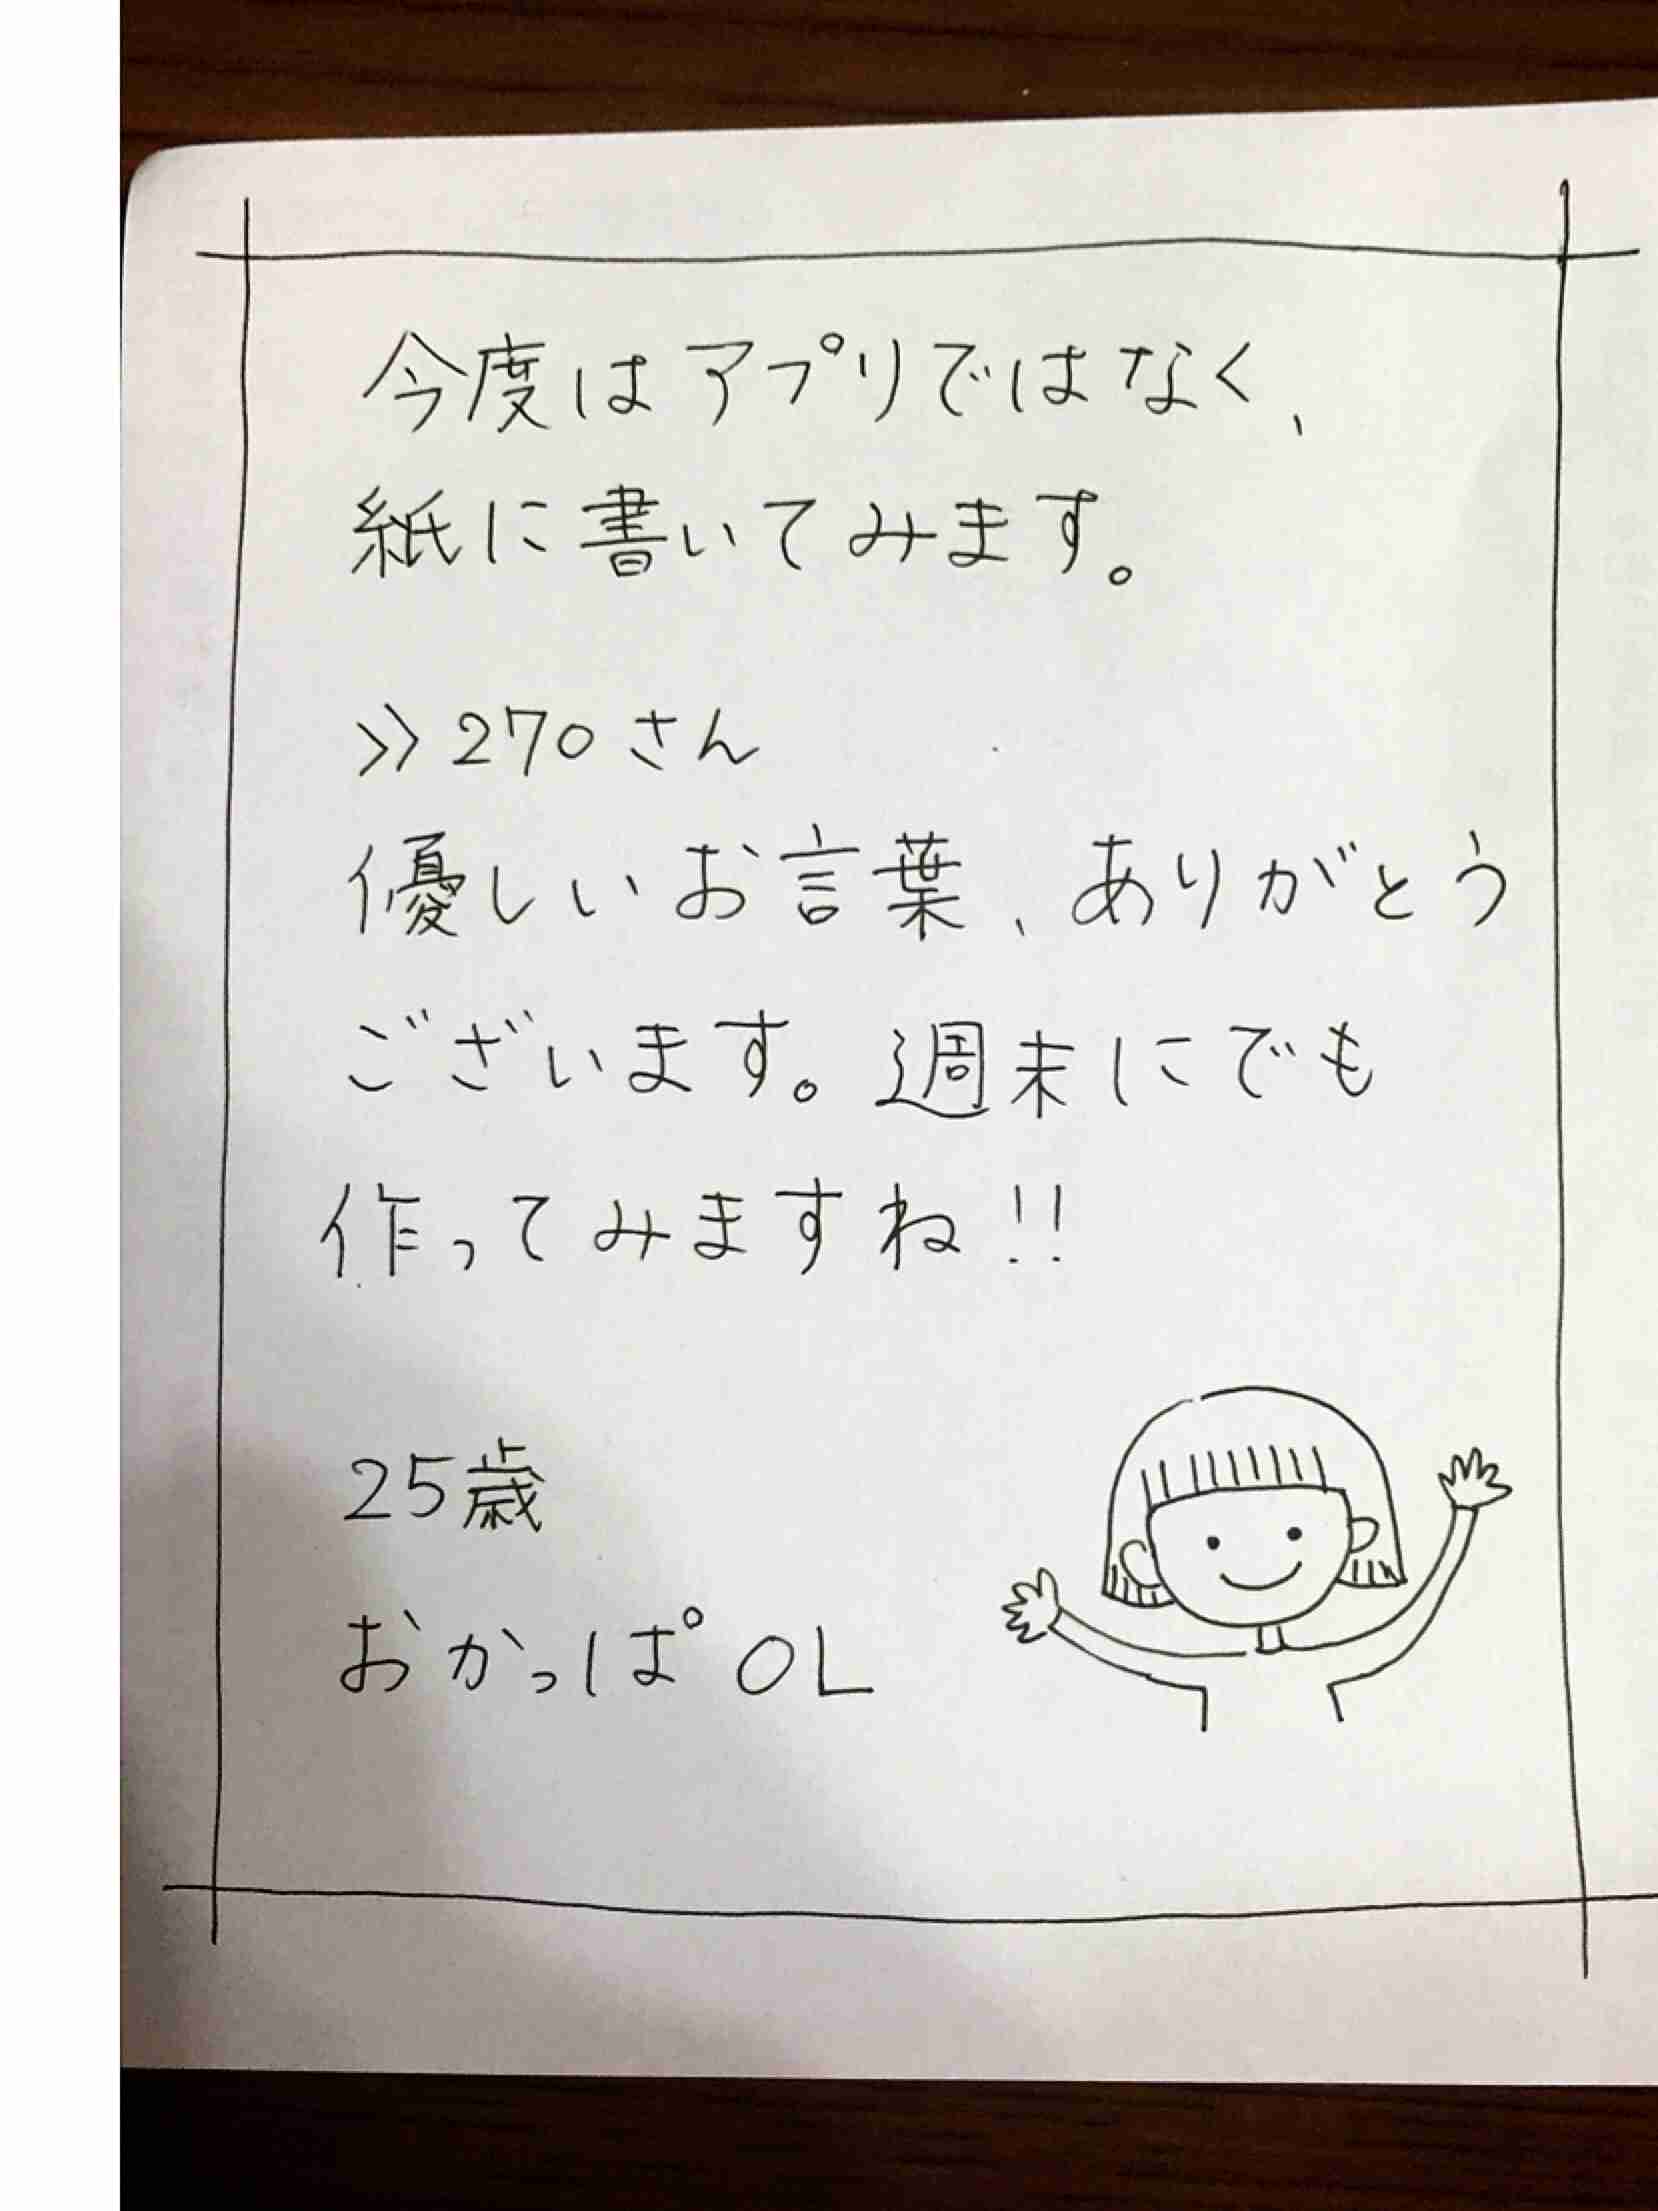 今度はアプリではなく、
紙に書いてみます。
>>270さん
優しいお言葉、ありがとう
ございます。週末にでも
作ってみますね!!
25歳
おかっぱOL